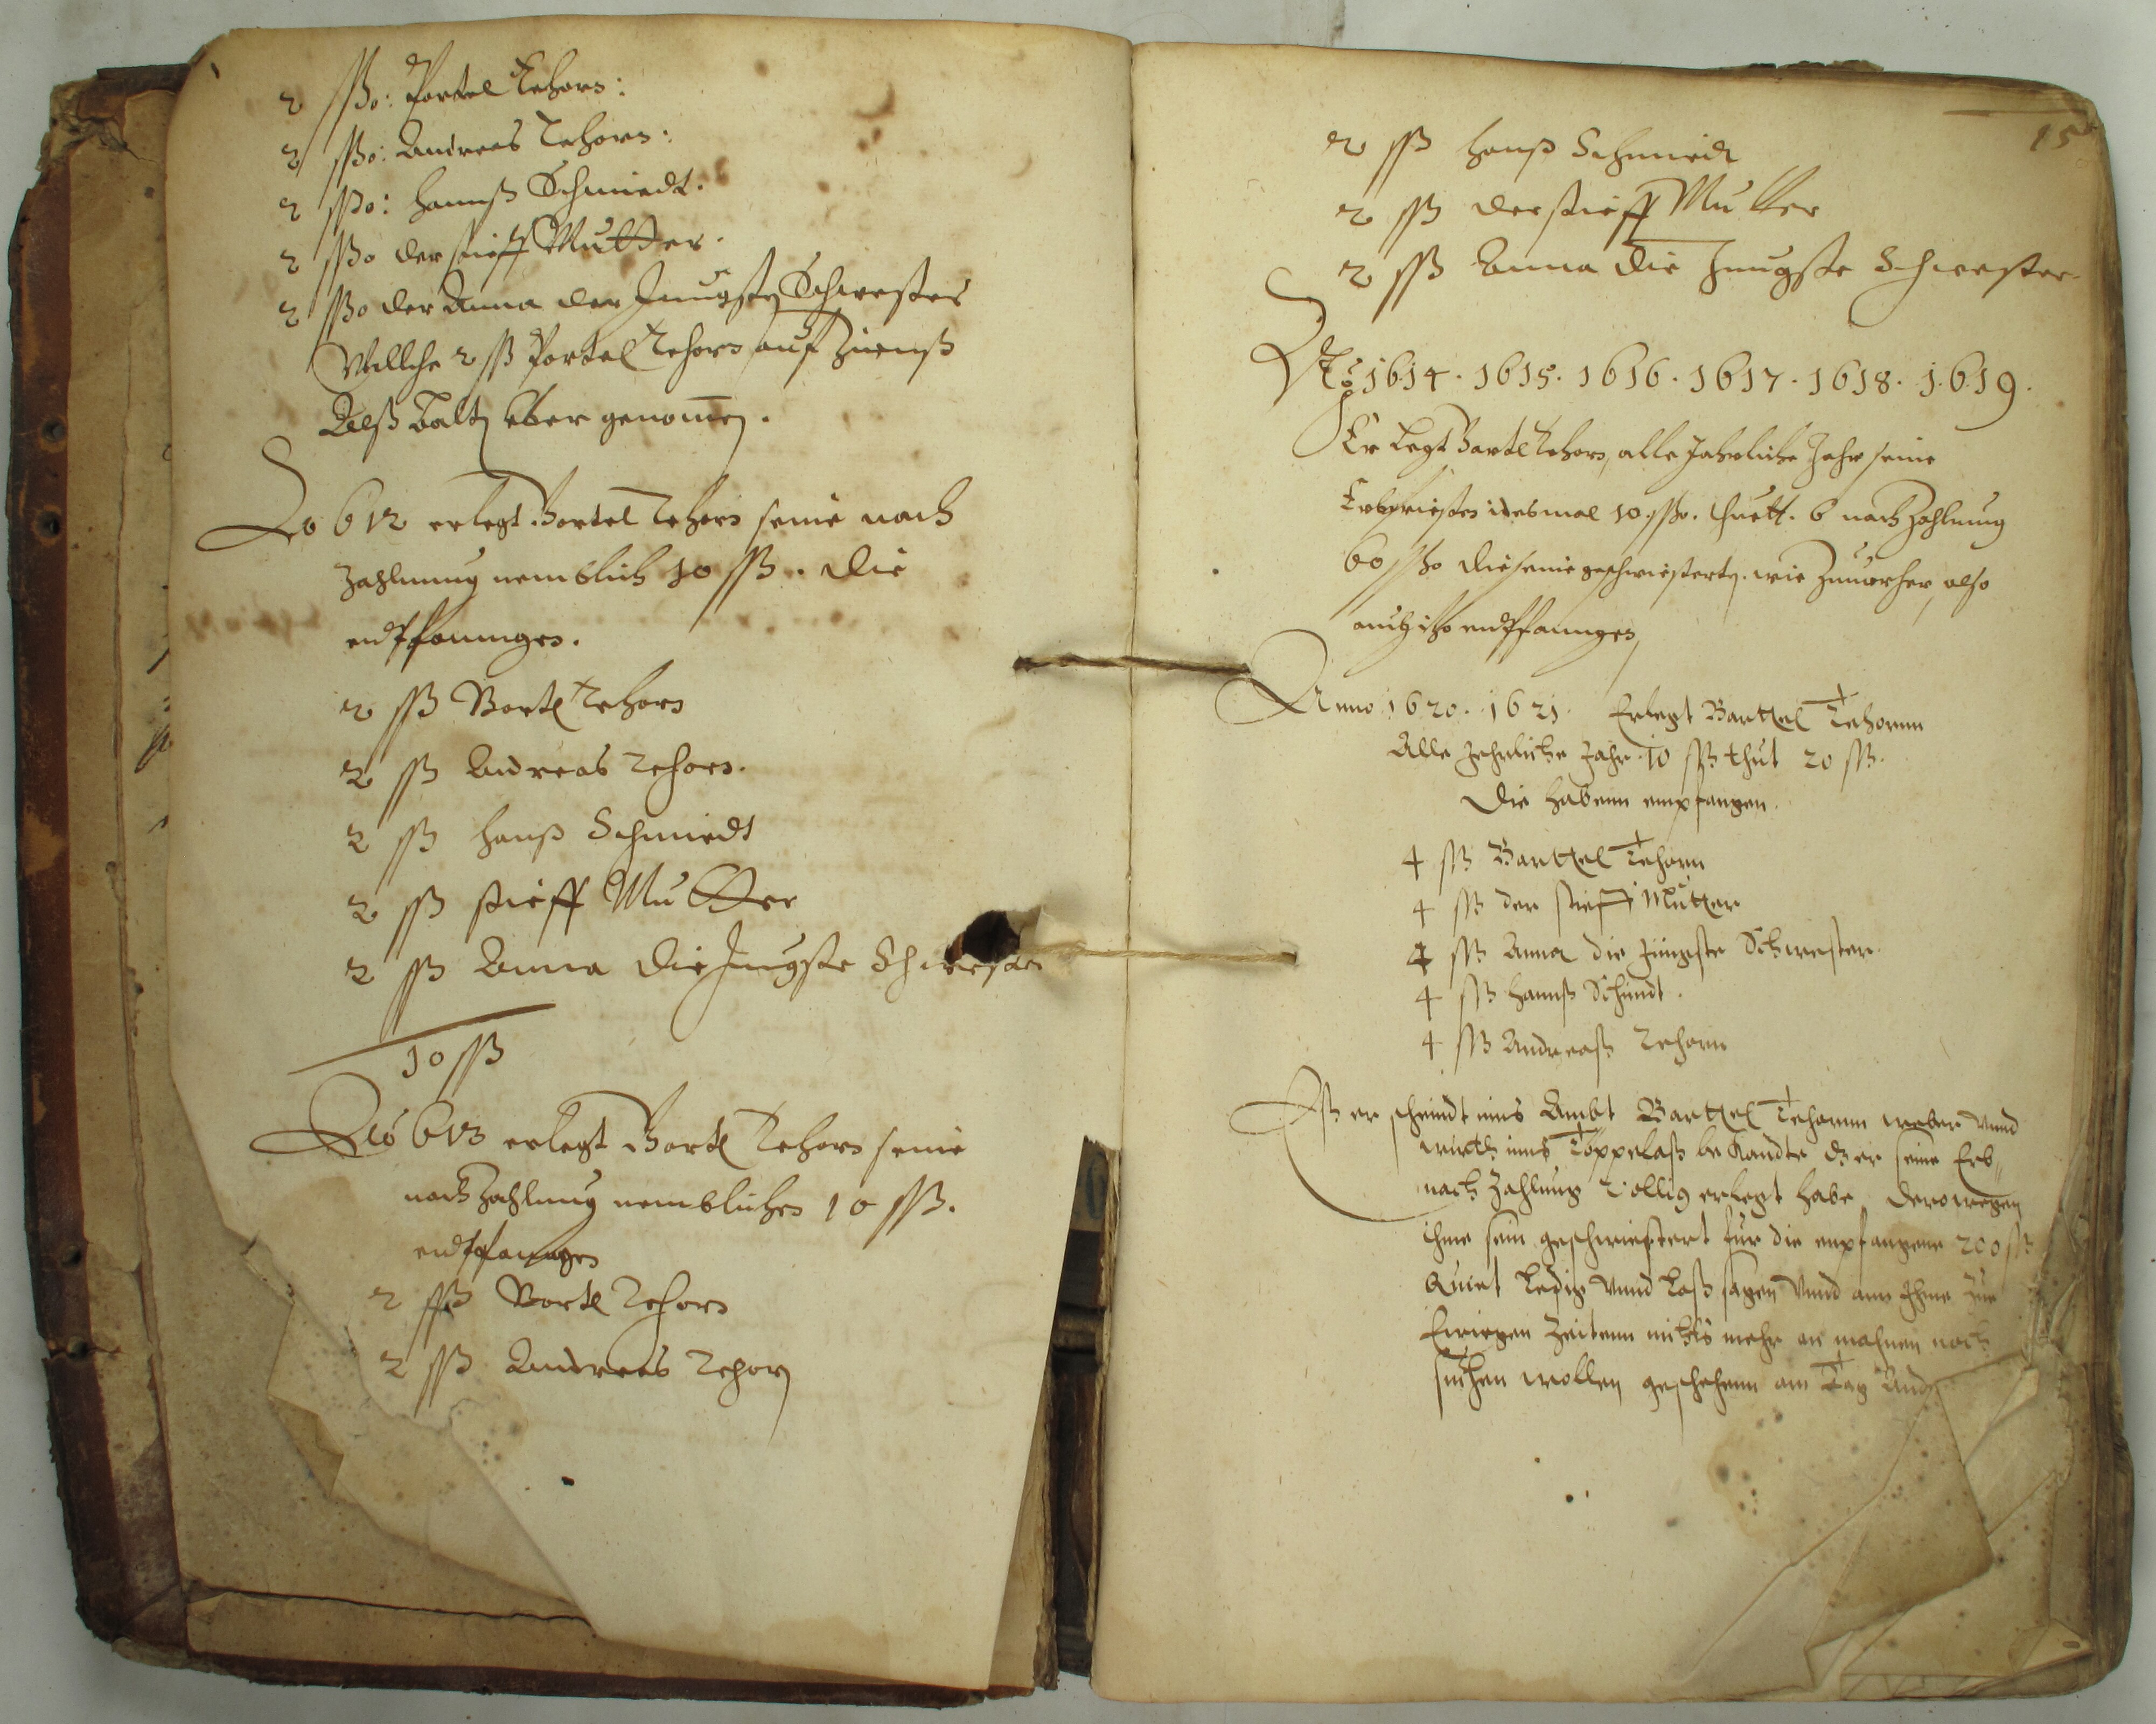 2 ßo: Portel Tehorn:
2 ßo: Andreas Tehorn:
2 ßo: Hannß Schmiedt.
2 ßo der stieff Mutter.
2 ßo der Anna der Jungsten Schwester
Wellche 2 ß Portel Tehorn auf
über genommen.
Ao 612 erlegt Bortel Tehorn seine nach
Zahlunng nemblich 10 ß. die
endtpfanngen.
2 ß Bortl Tehorn
2 ß Andreas Tehorn.
2 ß Hanß Schmiedt
2 ß stieff Mutter
2 ß Anna die Jungste Schwester
10 ß
Ao 613 erlegt Bortl Tehorn seine
nach Zahlung nemblichen 10 ß.
endtpfangen
2 ß Bortl Tehorn
2 ß Andreas Tehorn
15
2 ß Hanß Schmiedt
2 ß der stieff Mutter
2 ß Anna die Jungste Schwester
Ao 1614. 1615. 1616. 1617. 1618. 1619.
Er Legt Bartl Tehorn, alle Jahrliche Jahr seine
10 ßo. thutt. 6 nach Zahlung
60 ßo die seine geschwisterten. wie Zuuorher, also
auch endtpfanngen,
Anno 1620. 1621. Erlegt Barttel Tehornn
Alle Jehrliche Jahr 10 ß thut 20 ß.
Die habenn empfangen.
4 ß Barttel Tehorn
4 ß der stieff Mutter
4 ß Anna die Jüngste Schwester.
4 ß Hannß Schmidt.
4 ß Andreaß Tehorn
Eß er scheindt ins Ambt Barttel Tehornn weber vnnd
wirth ins be Kandte d er seine Erb
nach Zahlung völlig erlegt habe, derowegen
ihme sein geschwistert für die empfangene 200 ß
Quit Ledig vnnd Loß sagen vnnd ann Ihme zue
Ewiegen Zeitenn nichts mehr an mahnen noch
suchen wollen, geschehenn am Tag And